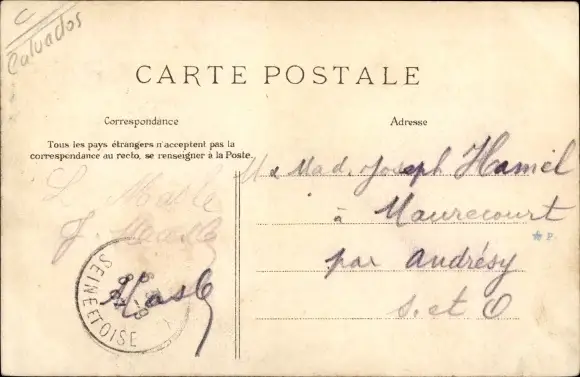 C
Calvados
CARTE POSTALE
Correspondance
Adresse
Tous les pays étrangers n'acceptent pas la
correspondance au recto, se renseigner à la Poste.
M & Mad. Joseph Hamel
à Maurecourt
par Andrésy
S. et O
L. Masle
J. Masle
Masle
SEINE ET OISE